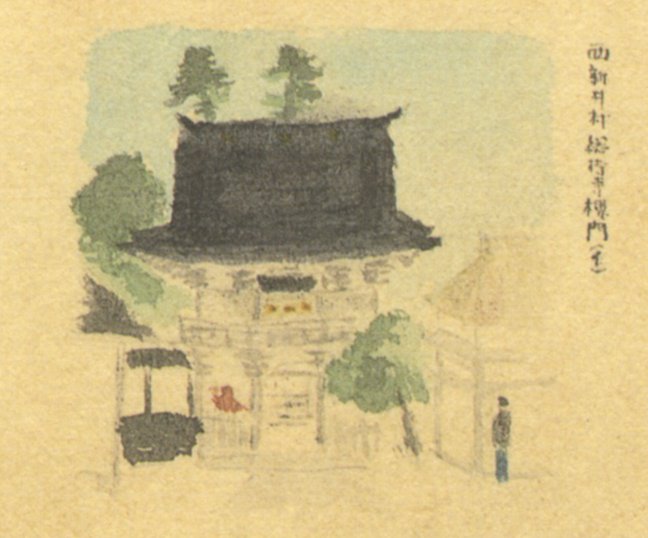 西新井村総持寺楼門